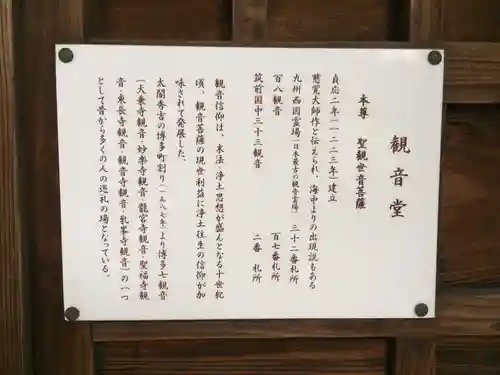 観音堂
本尊　聖観世音菩薩
貞応二年(一二二三年)建立
慈覚大師作と伝えられ、海中よりの出現説もある
九州西国霊場(日本最古の観音霊場)　三十二番札所
百八観音　百七番札所
筑前国中三十三観音　二番札所
観音信仰は、末法・浄土思想が盛んとなる十世紀
頃、観音菩薩の現世利益に浄土往生の信仰が加
味されて発展した。
太閤秀吉の博多町割り(一五八七年)より博多七観音
(大乗寺観音・妙楽寺観音・龍宮寺観音・聖福寺観
音・東長寺観音・観音寺観音・乳峯寺観音)の一つ
として昔から多くの人の巡礼の場となっている。